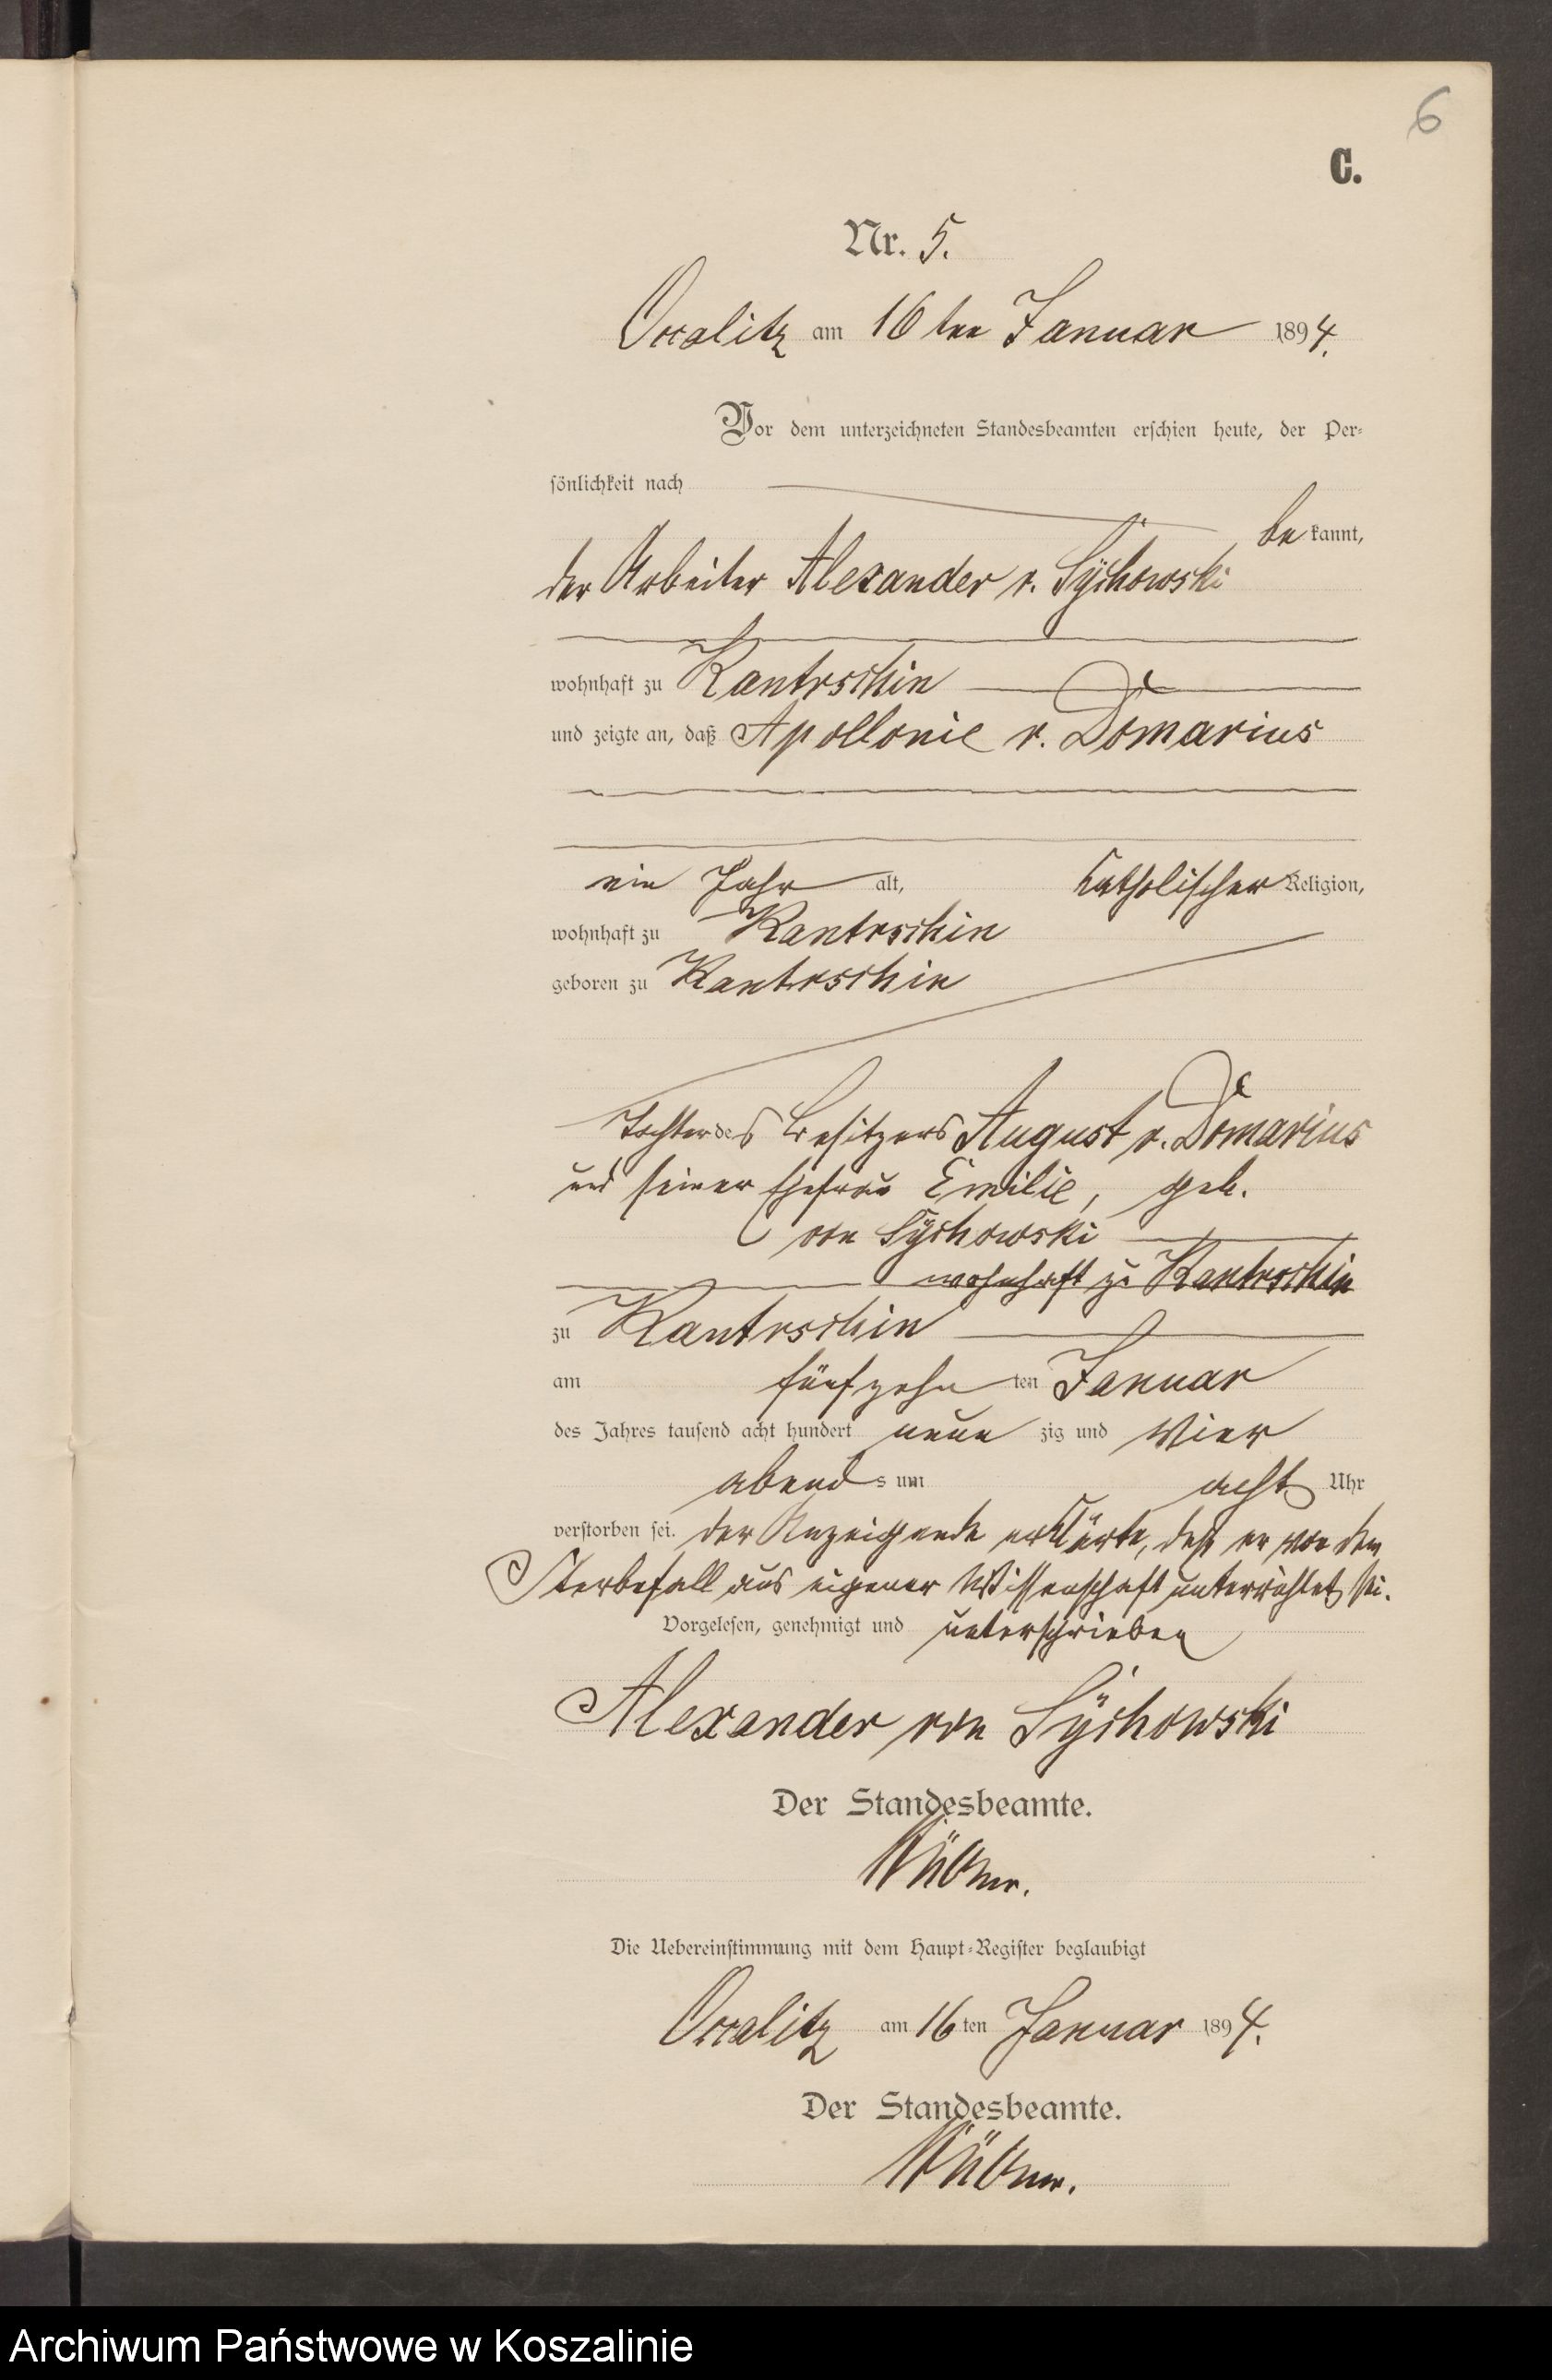 6
C.
Nr. 5.
Occalitz am 16ten Januar 1894.
Vor dem unterzeichneten Standesbeamten erschien heute, der Per-
sönlichkeit nach
be kannt,
der Arbeiter Alexander v. Sÿchowski
wohnhaft zu Kantrschin
und zeigte an, daß Apollonie v. Domarius
ein Jahr alt, katholischer Religion,
wohnhaft zu Kantrschin
geboren zu Kantrschin
Tochter des Besitzers August v. Domarius
und seiner Ehefrau Emilie, geb.
von Sÿchowski
wohnhaft zu Kantrschin
zu Kantrschin
am fünfzehn ten Januar
des Jahres tausend acht hundert neun zig und vier
abend s um acht Uhr
verstorben sei. der Anzeigende erklärte, daß er von dem
Sterbefall aus eigener Wissenschaft unterrichtet sei.
Vorgelesen, genehmigt und unterschrieben
Alexander von Sÿchowski
Der Standesbeamte.
Die Uebereinstimmung mit dem Haupt-Register beglaubigt
Occalitz am 16 ten Januar 1894.
Der Standesbeamte.
Archiwum Państwowe w Koszalinie